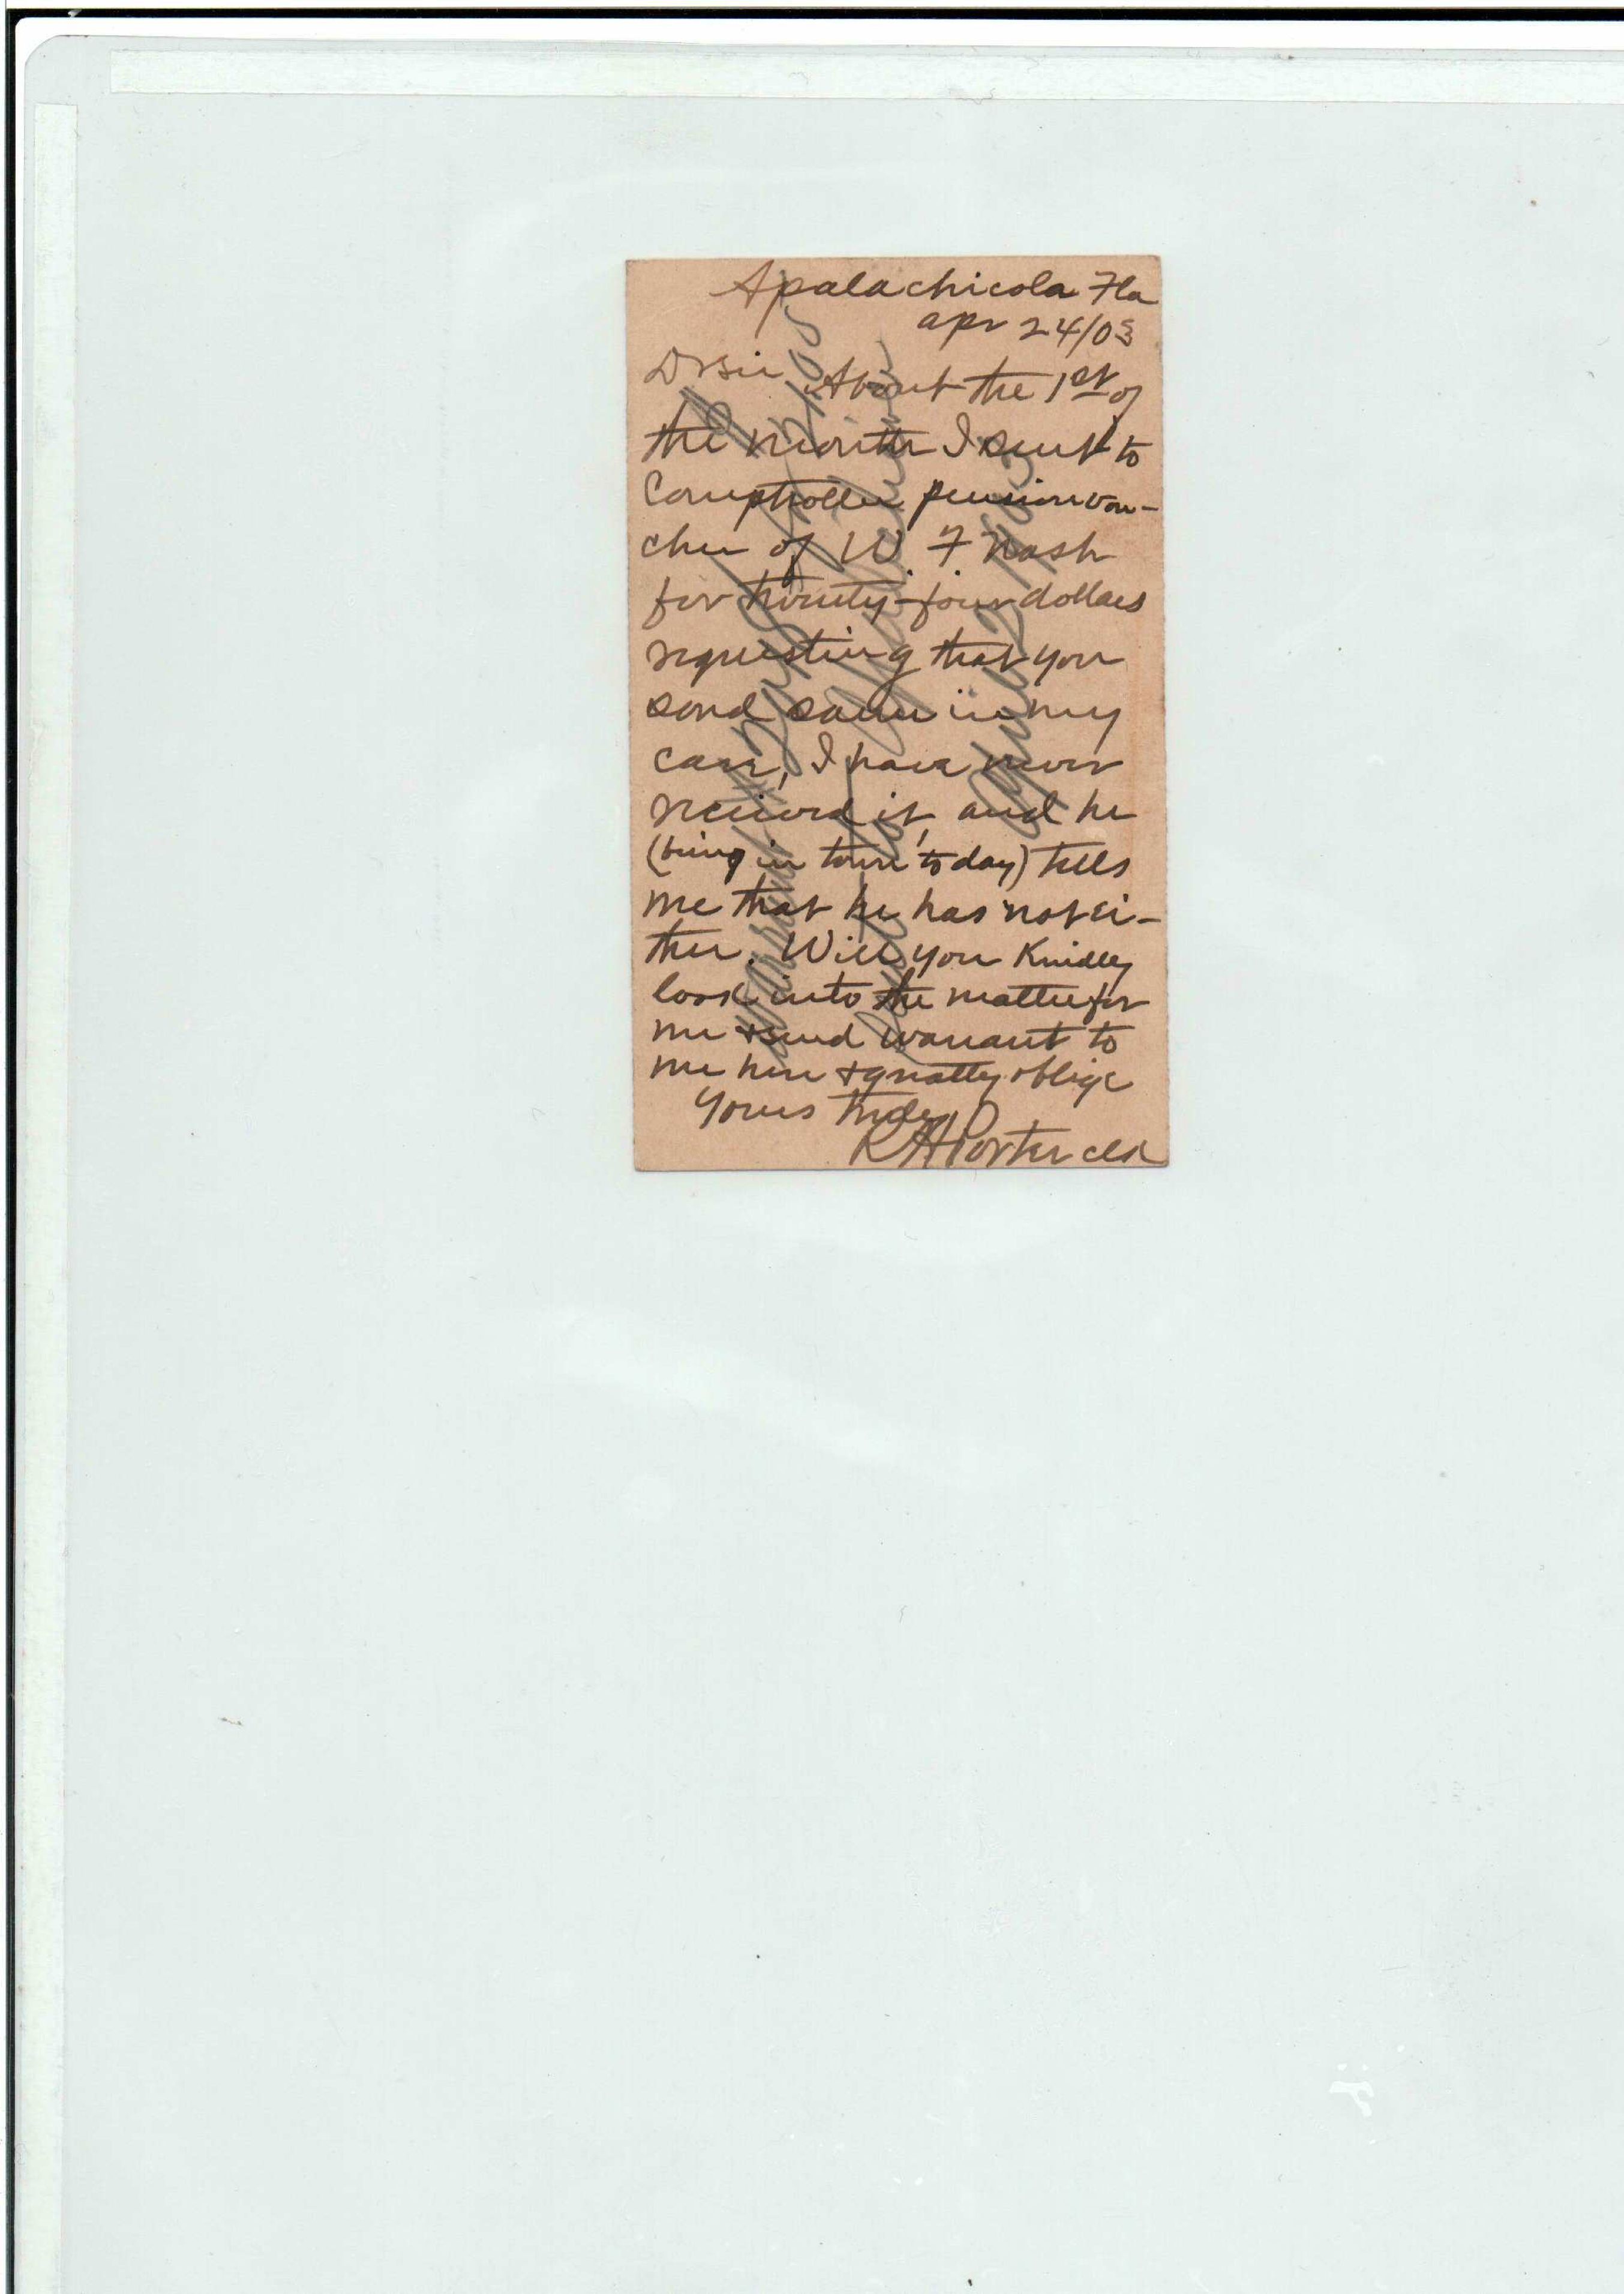 Apalachicola Fla
apr 24/03
D Sir About the 1st of
the month I sent to
Comptroller pension vou-
cher of W. F Nash
for twenty-four dollars
requesting that you
send same in my
care, I have never
received it, and he
(being in town to day) tells
me that he has not ei-
ther. Will you Kindly
look into the matter for
me & send warrant to
me here & greatly oblige
Yours truly
R H Porter clk
Warrant
April